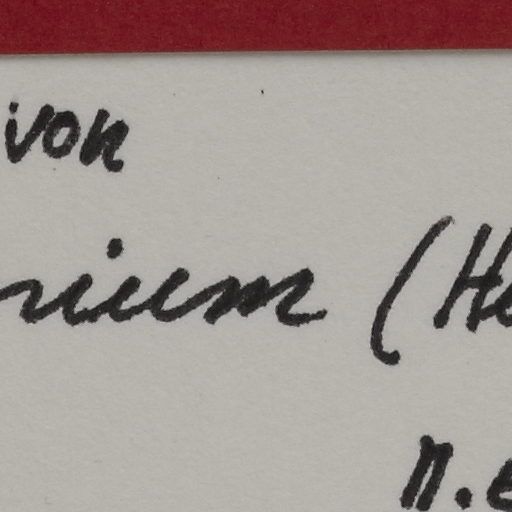 von
rium (He
n.e